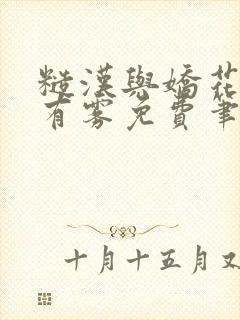 糙漢與嬌花
有雾免費筆
十月十五月又